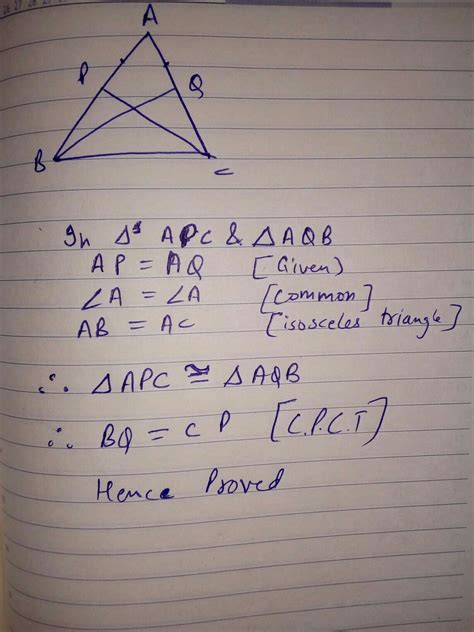 A
P
Q
B
C
In Δs APC & ΔAQB
AP = AQ [Given)
∠A = ∠A [Common]
AB = AC [isosceles triangle]
∴ ΔAPC ≅ ΔAQB
∴ BQ = CP [C.P.C.T]
Hence Proved